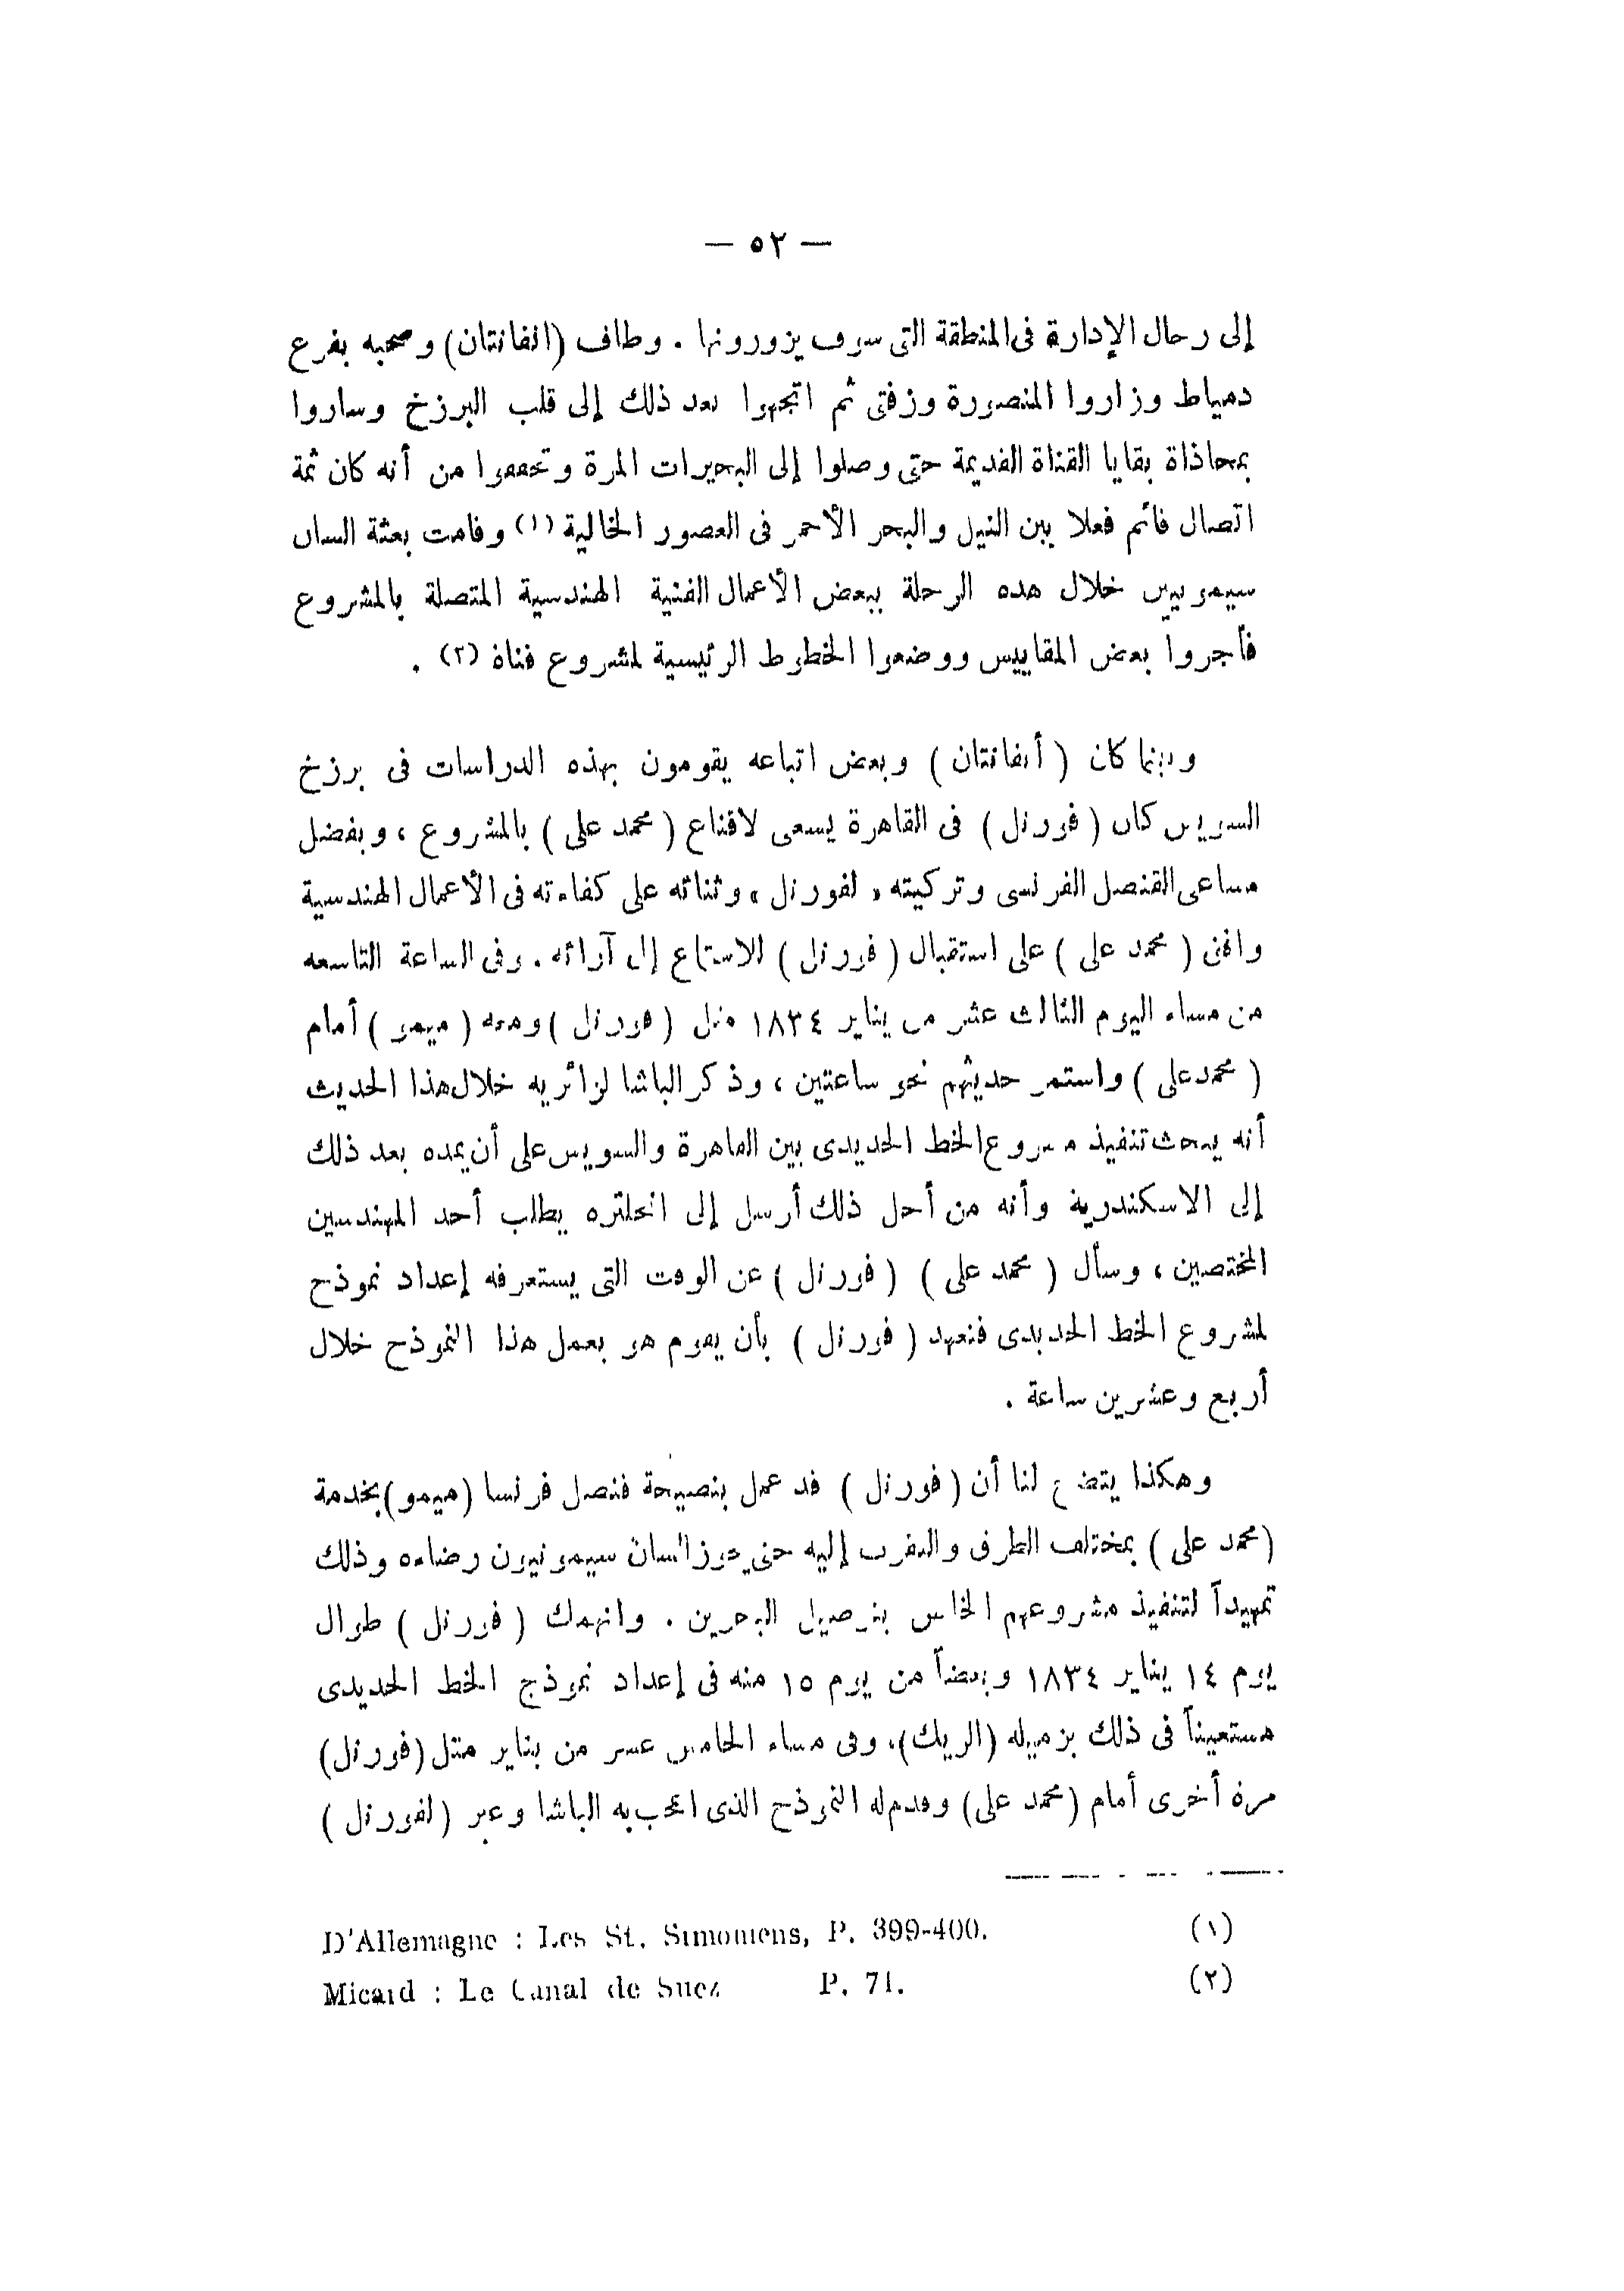 — ٥٢ —
إلى رجال الإدارة فى المنطقة التى سوف يزورونها . وطاف (انفانتان) وصحبه بفرع
دمياط وزاروا المنصورة وزفتى ثم اتجهوا بعد ذلك إلى قلب البرزخ وساروا
بمحاذاة بقايا القناة القديمة حتى وصلوا إلى البحيرات المرة وتحققوا من أنه كان ثمة
اتصال قائم فعلا بين النيل والبحر الأحمر فى العصور الخالية (١) وقامت بعثة السان
سيمونيين خلال هذه الرحلة ببعض الأعمال الفنية الهندسية المتصلة بالمشروع
فأجروا بعض المقاييس ووضعوا الخطوط الرئيسية لمشروع قناة (٢) .
وبينما كان ( أنفانتان ) وبعض اتباعه يقومون بهذه الدراسات فى برزخ
السويس كان ( فورنل ) فى القاهرة يسعى لاقناع ( محمد على ) بالمشروع ، وبفضل
مساعى القنصل الفرنسى وتزكيته « لفورنل » وثنائه على كفاءته فى الأعمال الهندسية
وافق ( محمد على ) على استقبال ( فورنل ) للاستماع إلى آرائه . وفى الساعة التاسعه
من مساء اليوم الثالث عشر من يناير ١٨٣٤ مثل ( فورنل ) ومعه ( ميمو ) أمام
( محمد على ) واستمر حديثهم نحو ساعتين ، وذكر الباشا لزائريه خلال هذا الحديث
أنه يبحث تنفيذ مشروع الخط الحديدى بين القاهرة والسويس على أن يمده بعد ذلك
إلى الاسكندرية وأنه من أجل ذلك أرسل إلى انجلتره يطلب أحد المهندسين
المختصين ، وسأل ( محمد على ) ( فورنل ) عن الوقت التى يستغرقه إعداد نموذج
لمشروع الخط الحديدى فتعهد ( فورنل ) بأن يقوم هو بعمل هذا النموذج خلال
أربع وعشرين ساعة .
وهكذا يتضح لنا أن ( فورنل ) قد عمل بنصيحة قنصل فرنسا (ميمو) بخدمة
(محمد على ) بمختلف الطرق والتقرب إليه حتى يحوز السان سيمونيون رضاءه وذلك
تمهيداً لتنفيذ مشروعهم الخاص بتوصيل البحرين . وانهمك ( فورنل ) طوال
يوم ١٤ يناير ١٨٣٤ وبعضاً من يوم ١٥ منه فى إعداد نموذج الخط الحديدى
مستعيناً فى ذلك بزميله (الريك)، وفى مساء الخامس عشر من يناير مثل (فورنل)
مرة أخرى أمام (محمد على) وقدم له النموذج الذى اعجب به الباشا وعبر (لفورنل )
(١) D'Allemagne : Les St. Simoniens, P. 399-400.
(٢) Micard : Le Canal de Suez P. 71.